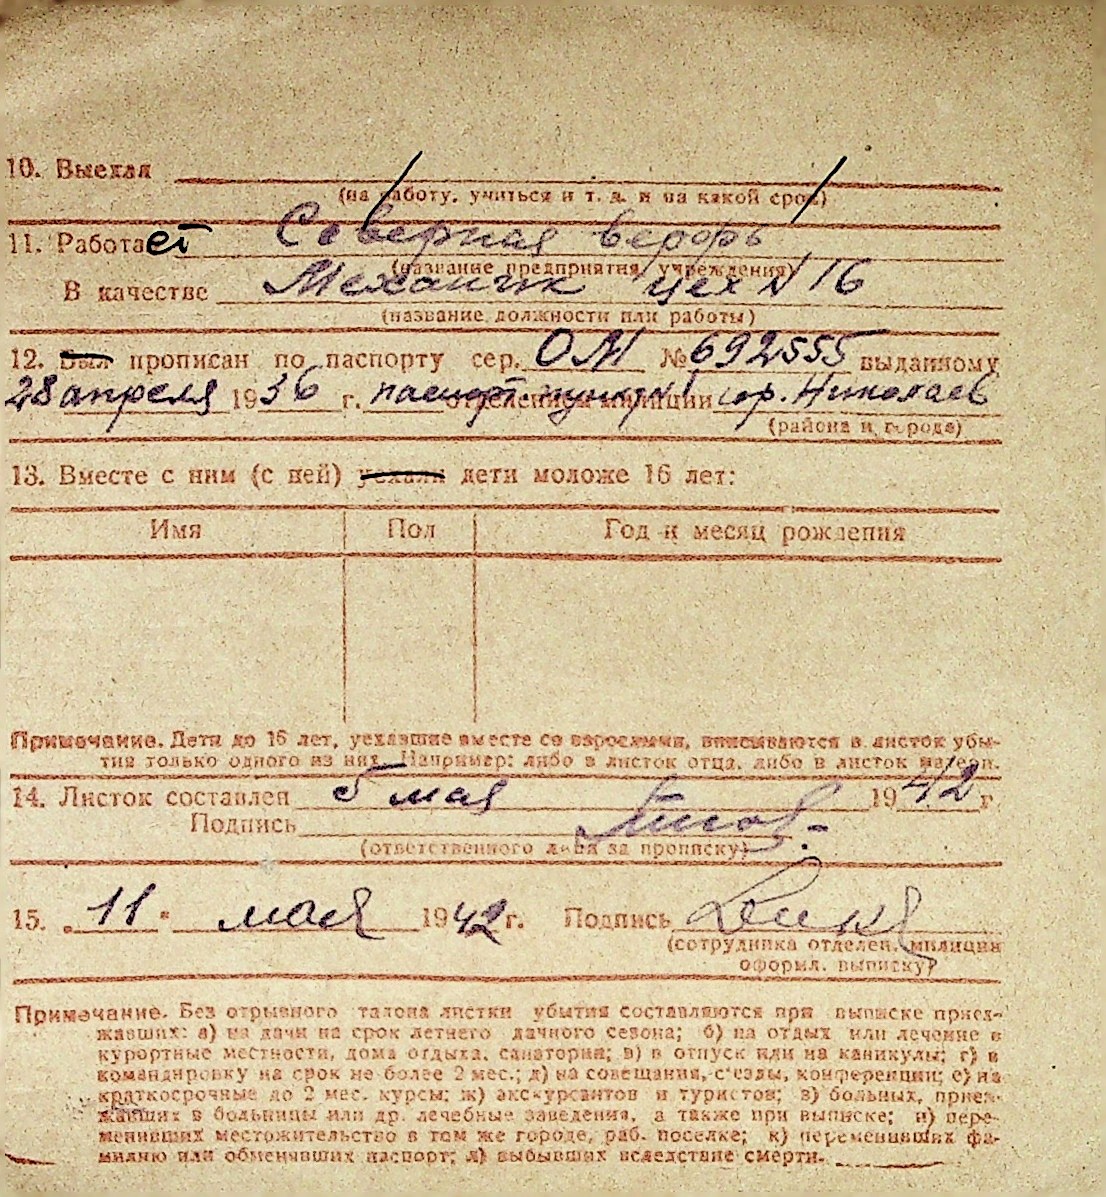 10. Выехал
(на работу, учиться и т. д. и на какой срок)
11. Работает Северная верфь
(название предприятия, учреждения)
В качестве Механик цех № 16
(название должности или работы)
12. Был прописан по паспорту сер. ОМ № 692555 выданному
28 апреля 1936 г. паспорт. пункт отделением милиции гор. Николаев
(района и города)
13. Вместе с ним (с ней) уехали дети моложе 16 лет:
Имя Пол Год и месяц рождения
Примечание. Дети до 16 лет, уехавшие вместе со взрослыми, вписываются в листок убы-
тия только одного из них. Например: либо в листок отца, либо в листок матери.
14. Листок составлен 5 мая 1942 г.
Подпись
(ответственного лица за прописку)
15. "11" мая 1942 г. Подпись
(сотрудника отделен. милиции
оформл. выписку)
Примечание. Без отрывного талона листки убытия составляются при выписке приез-
жавших: а) на дачи на срок летнего дачного сезона; б) на отдых или лечение в
курортные местности, дома отдыха, санатории; в) в отпуск или на каникулы; г) в
командировку на срок не более 2 мес.; д) на совещания, с'езды, конференции; е) на
краткосрочные до 2 мес. курсы; ж) экскурсантов и туристов; з) больных, приез-
жавших в больницы или др. лечебные заведения, а также при выписке; и) пере-
менивших местожительство в том же городе, раб. поселке; к) переменивших фа-
милию или обменявших паспорт; л) выбывших вследствие смерти.